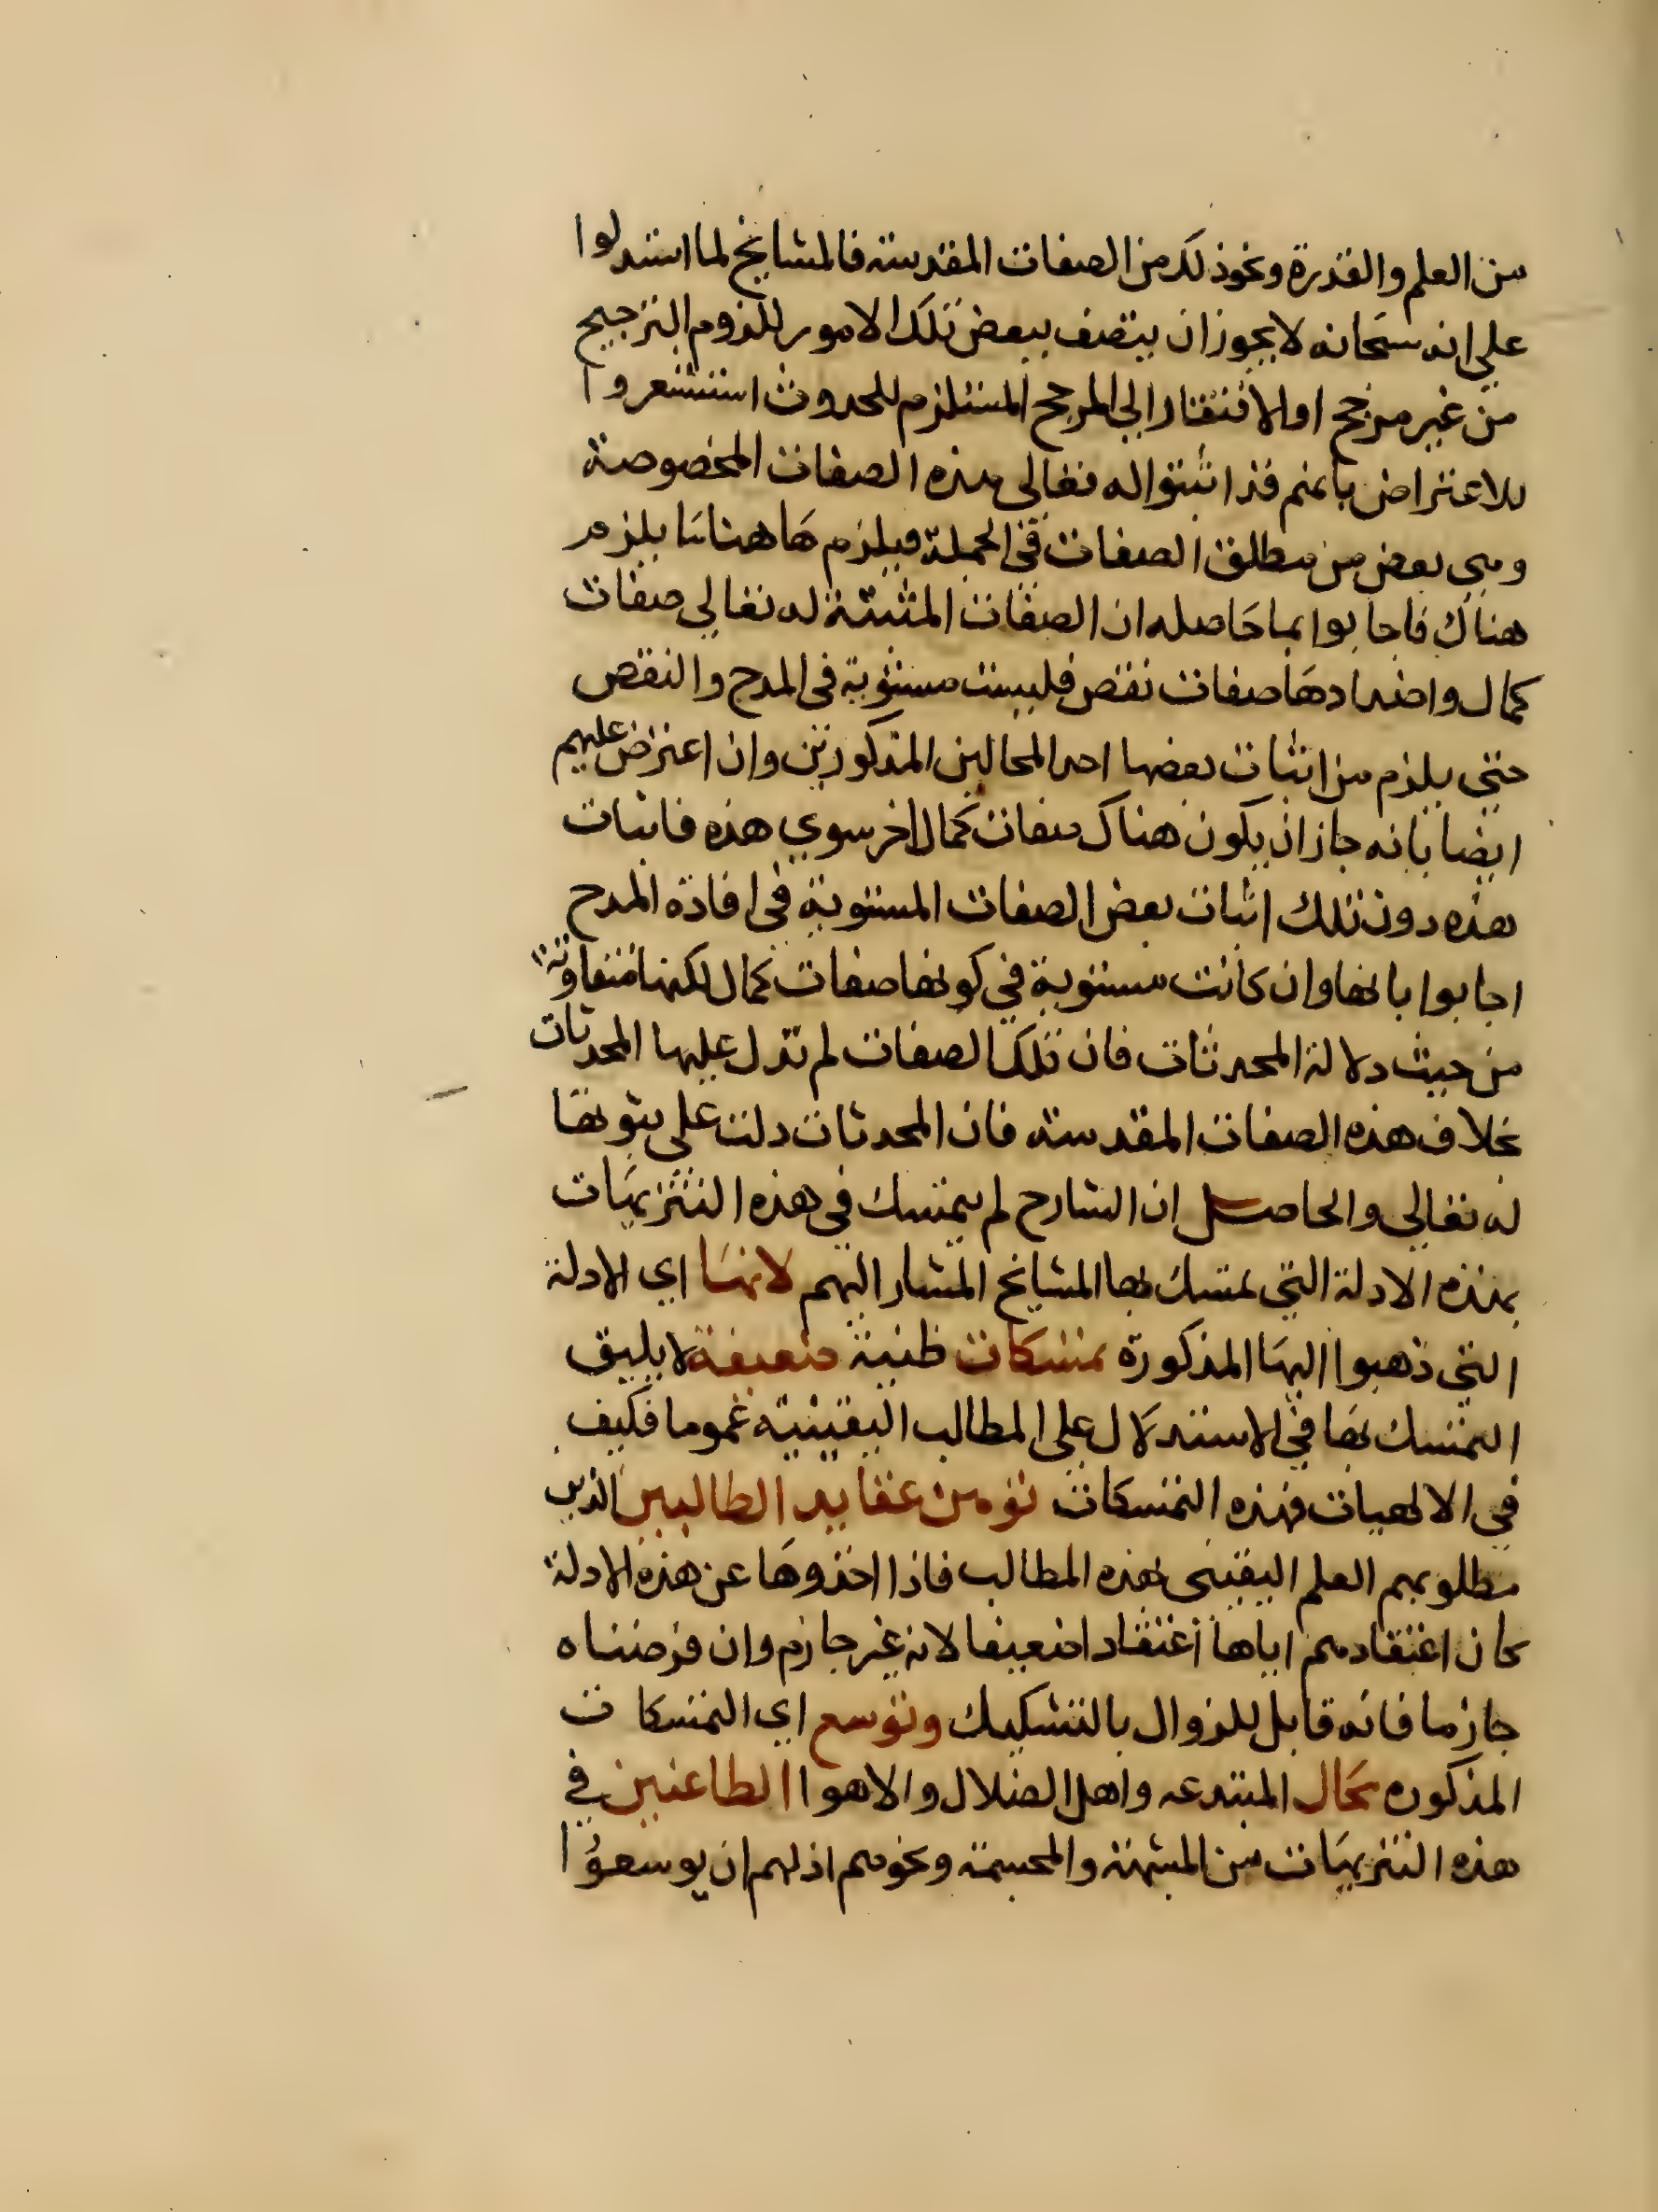 من العلم والقدرة ونحو ذلك من الصفات المقدسة فالمشايخ لما استدلوا
على انه سبحانه لا يجوز ان يتصف ببعض تلك الامور للزوم الترجيح
من غير مرجح او الافتقار الى المرجح المستلزم للحدوث استشعروا
للاعتراض بانهم قد اثبتوا له تعالى هذه الصفات المخصوصة
وهي بعض من مطلق الصفات في الجملة فيلزم هاهنا ما يلزم
هناك فاجابوا بما حاصله ان الصفات المثبتة له تعالى صفات
كمال واضدادها صفات نقص فليست مستوية في المدح والنقص
حتى يلزم من اثبات بعضها احد المحالين المذكورين وان اعترض عليهم
ايضا بانه جاز ان يكون هناك صفات كمال اخر سوى هذه فاثبات
هذه دون تلك اثبات بعض الصفات المستوية في افادة المدح
اجابوا بانها وان كانت مستوية في كونها صفات كمال لكنها متفاوتة
من حيث دلالة المحدثات فان تلك الصفات لم تدل عليها المحدثات
بخلاف هذه الصفات المقدسة فان المحدثات دلت على ثبوتها
له تعالى والحاصل ان الشارح لم يتمسك في هذه التنزيهات
بهذه الادلة التي تمسك بها المشايخ المشار اليهم لانها اي الادلة
التي ذهبوا اليها المذكورة تمسكات ظنية ضعيفة لا يليق
التمسك بها في الاستدلال على المطالب اليقينية عموما فكيف
في الالهيات فهذه التمسكات توهن عقايد الطالبين الذين
مطلوبهم العلم اليقيني بهذه المطالب فاذا اخذوها عن هذه الادلة
كان اعتقادهم اياها اعتقادا ضعيفا لانه غير جازم وان فرضناه
جازما فانه قابل للزوال بالتشكيك وتوسع اي التمسكات
المذكوره مجال المبتدعه واهل الضلال والاهوا الطاعنين في
هذه التنزيهات من المشبهة والمجسمة ونحوهم اذ لهم ان يوسعوا